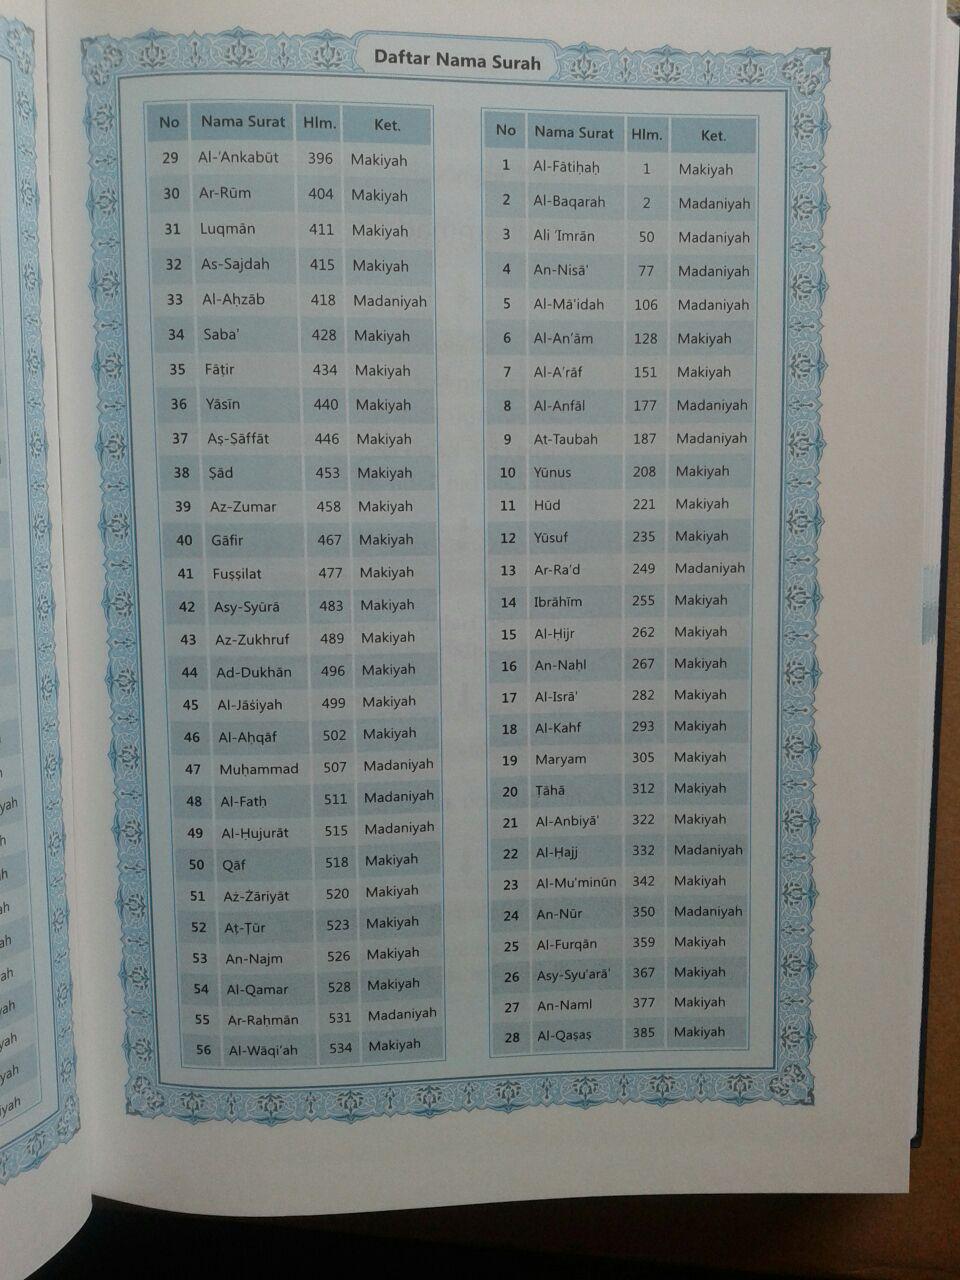 Daftar Nama Surah
No Nama Surat Hlm. Ket.
29 Al-'Ankabūt 396 Makiyah
30 Ar-Rūm 404 Makiyah
31 Luqmān 411 Makiyah
32 As-Sajdah 415 Makiyah
33 Al-Aḥzāb 418 Madaniyah
34 Saba' 428 Makiyah
35 Fāṭir 434 Makiyah
36 Yāsīn 440 Makiyah
37 Aṣ-Ṣāffāt 446 Makiyah
38 Ṣād 453 Makiyah
39 Az-Zumar 458 Makiyah
40 Gāfir 467 Makiyah
41 Fuṣṣilat 477 Makiyah
42 Asy-Syūrā 483 Makiyah
43 Az-Zukhruf 489 Makiyah
44 Ad-Dukhān 496 Makiyah
45 Al-Jāṡiyah 499 Makiyah
46 Al-Aḥqāf 502 Makiyah
47 Muḥammad 507 Madaniyah
48 Al-Fatḥ 511 Madaniyah
49 Al-Ḥujurāt 515 Madaniyah
50 Qāf 518 Makiyah
51 Aż-Żāriyāt 520 Makiyah
52 Aṭ-Ṭūr 523 Makiyah
53 An-Najm 526 Makiyah
54 Al-Qamar 528 Makiyah
55 Ar-Raḥmān 531 Madaniyah
56 Al-Wāqi'ah 534 Makiyah
No Nama Surat Hlm. Ket.
1 Al-Fâtiḥaḥ 1 Makiyah
2 Al-Baqarah 2 Madaniyah
3 Ali 'Imrān 50 Madaniyah
4 An-Nisā' 77 Madaniyah
5 Al-Mā'idah 106 Madaniyah
6 Al-An'ām 128 Makiyah
7 Al-A'rāf 151 Makiyah
8 Al-Anfāl 177 Madaniyah
9 At-Taubah 187 Madaniyah
10 Yūnus 208 Makiyah
11 Hūd 221 Makiyah
12 Yūsuf 235 Makiyah
13 Ar-Ra'd 249 Madaniyah
14 Ibrāhīm 255 Makiyah
15 Al-Ḥijr 262 Makiyah
16 An-Naḥl 267 Makiyah
17 Al-Isrā' 282 Makiyah
18 Al-Kahf 293 Makiyah
19 Maryam 305 Makiyah
20 Ṭāhā 312 Makiyah
21 Al-Anbiyā' 322 Makiyah
22 Al-Ḥajj 332 Madaniyah
23 Al-Mu'minūn 342 Makiyah
24 An-Nūr 350 Madaniyah
25 Al-Furqān 359 Makiyah
26 Asy-Syu'arā' 367 Makiyah
27 An-Naml 377 Makiyah
28 Al-Qaṣaṣ 385 Makiyah